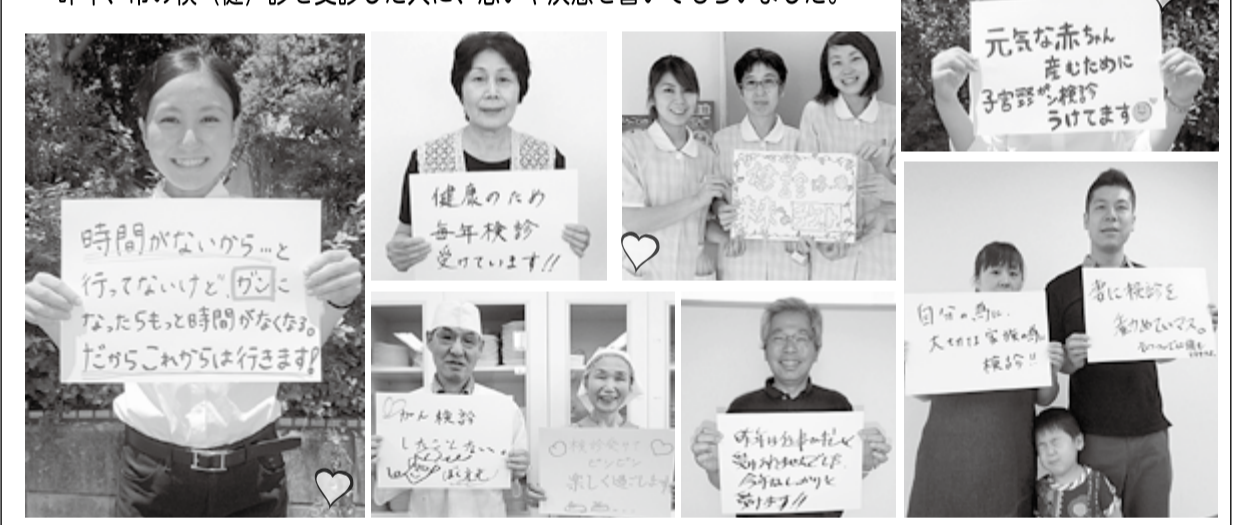 昨年、市の検（健）診を受診した人に、思いや決意を書いてもらいました。
時間がないから…と
行ってないけど、ガンに
なったらもっと時間がなくなる。
だからこれからは行きます!
健康のため
毎年検診
受けています!!
元気な赤ちゃん
産むために
子宮頸ガン検診
うけてます
がん検診
したことない。
検診受けて
ピンピン
楽しく過ごしてます
昨年は仕事の
受けられませんでした。
今年はしっかりと
受けます!!
自分の為に、
大切な家族の為に
検診!!
者に検診を
勧めていマス。